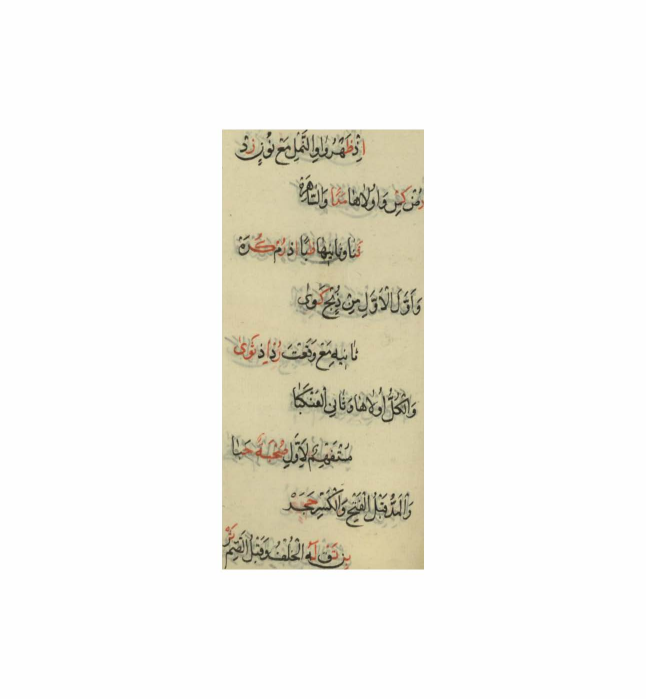 اِذْ ظَهَرُوا وَالنَّمْلِ مَعَ نُوْنٍ زِدْ
رُضْ كِسْ وَاُولاَهَا مَدًا وَالسَّاهِرَهْ
ثَنَا وَثَانِيهَا ظُبًا اذ رُمْ كُرَّهْ
وَاَوَّلُ الْاَوَّلِ مِنْ ذِبْحٍ كَوٰى
ثانيه مَعْ وَقَعَتْ رُدْ اِذ ثَوٰى
وَالْكُلُّ اُولاَهَا وَثَانِي الْعَنْكَبَا
مُسْتَفْهِمُ لاَوَّلِ صُحْبَةٌ حَبَا
وَالْمَدُّ قَبْلَ الْفَتْحِ وَالْكَسْرِ حَجَرْ
بِنْ ثِقْ لَهُ الْخُلْفُ وَقَبْلَ الضَّمِّ ثَرْ